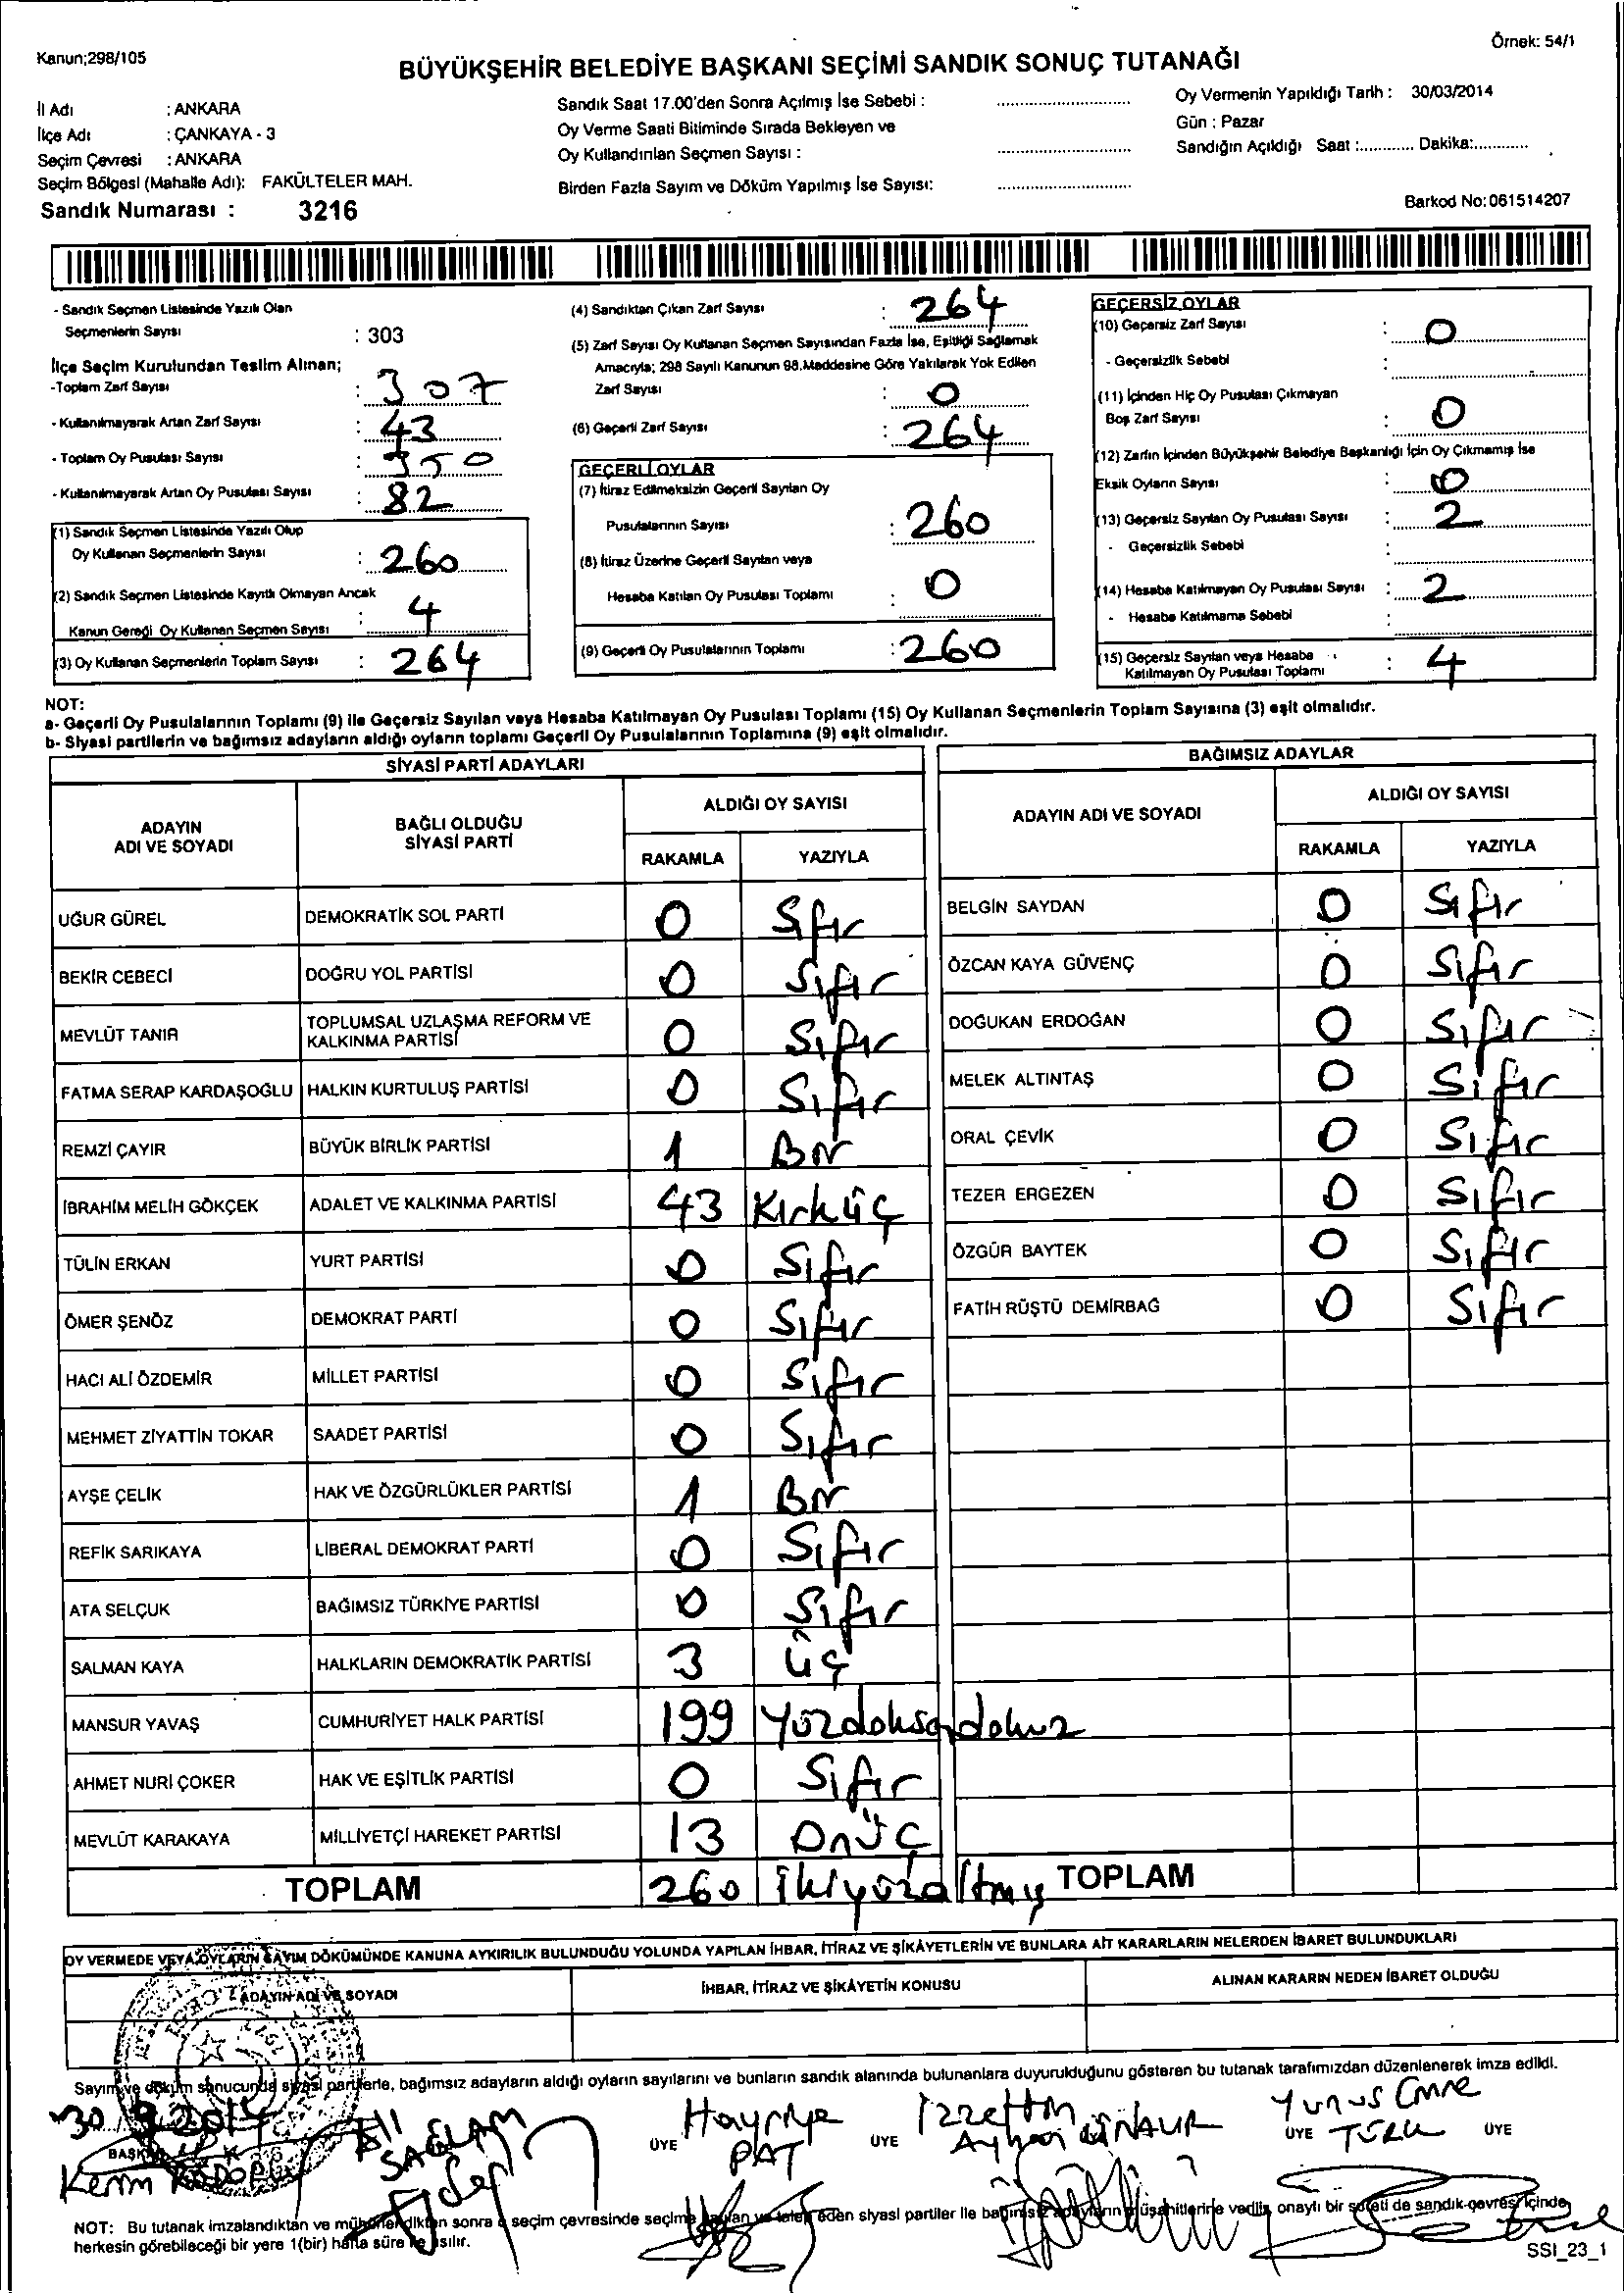 Kanun;298/105
Örnek: 54/1
BÜYÜKŞEHİR BELEDİYE BAŞKANI SEÇİMİ SANDIK SONUÇ TUTANAĞI
İl Adı : ANKARA
İlçe Adı : ÇANKAYA - 3
Seçim Çevresi : ANKARA
Seçim Bölgesi (Mahalle Adı): FAKÜLTELER MAH.
Sandık Numarası : 3216
Sandık Saat 17.00'den Sonra Açılmış İse Sebebi :
Oy Verme Saati Bitiminde Sırada Bekleyen ve
Oy Kullandırılan Seçmen Sayısı :
Birden Fazla Sayım ve Döküm Yapılmış İse Sayısı:
Oy Vermenin Yapıldığı Tarih : 30/03/2014
Gün : Pazar
Sandığın Açıldığı Saat :............ Dakika:............
Barkod No:061514207
- Sandık Seçmen Listesinde Yazılı Olan
Seçmenlerin Sayısı : 303
İlçe Seçim Kurulundan Teslim Alınan;
-Toplam Zarf Sayısı : 307
- Kullanılmayarak Artan Zarf Sayısı : 43
- Toplam Oy Pusulası Sayısı : 350
- Kullanılmayarak Artan Oy Pusulası Sayısı : 82
(1) Sandık Seçmen Listesinde Yazılı Olup
Oy Kullanan Seçmenlerin Sayısı : 260
(2) Sandık Seçmen Listesinde Kayıtlı Olmayan Ancak
Kanun Gereği Oy Kullanan Seçmen Sayısı : 4
(3) Oy Kullanan Seçmenlerin Toplam Sayısı : 264
(4) Sandıktan Çıkan Zarf Sayısı : 264
(5) Zarf Sayısı Oy Kullanan Seçmen Sayısından Fazla İse, Eşitliği Sağlamak
Amacıyla; 298 Sayılı Kanunun 98.Maddesine Göre Yakılarak Yok Edilen
Zarf Sayısı : 0
(6) Geçerli Zarf Sayısı : 264
GEÇERLİ OYLAR
(7) İtiraz Edilmeksizin Geçerli Sayılan Oy
Pusulalarının Sayısı : 260
(8) İtiraz Üzerine Geçerli Sayılan veya
Hesaba Katılan Oy Pusulası Toplamı : 0
(9) Geçerli Oy Pusulalarının Toplamı : 260
GEÇERSİZ OYLAR
(10) Geçersiz Zarf Sayısı : 0
- Geçersizlik Sebebi :
(11) İçinden Hiç Oy Pusulası Çıkmayan
Boş Zarf Sayısı : 0
(12) Zarfın İçinden Büyükşehir Belediye Başkanlığı İçin Oy Çıkmamış İse
Eksik Oyların Sayısı : 0
(13) Geçersiz Sayılan Oy Pusulası Sayısı : 2
- Geçersizlik Sebebi :
(14) Hesaba Katılmayan Oy Pusulası Sayısı : 2
- Hesaba Katılmama Sebebi :
(15) Geçersiz Sayılan veya Hesaba
Katılmayan Oy Pusulası Toplamı : 4
NOT:
a- Geçerli Oy Pusulalarının Toplamı (9) ile Geçersiz Sayılan veya Hesaba Katılmayan Oy Pusulası Toplamı (15) Oy Kullanan Seçmenlerin Toplam Sayısına (3) eşit olmalıdır.
b- Siyasi partilerin ve bağımsız adayların aldığı oyların toplamı Geçerli Oy Pusulalarının Toplamına (9) eşit olmalıdır.
SİYASİ PARTİ ADAYLARI
ADAYIN ADI VE SOYADI BAĞLI OLDUĞU SİYASİ PARTİ ALDIĞI OY SAYISI
RAKAMLA YAZIYLA
UĞUR GÜREL DEMOKRATİK SOL PARTİ 0 Sıfır
BEKİR CEBECİ DOĞRU YOL PARTİSİ 0 Sıfır
MEVLÜT TANIR TOPLUMSAL UZLAŞMA REFORM VE KALKINMA PARTİSİ 0 Sıfır
FATMA SERAP KARDAŞOĞLU HALKIN KURTULUŞ PARTİSİ 0 Sıfır
REMZİ ÇAYIR BÜYÜK BİRLİK PARTİSİ 1 Bir
İBRAHİM MELİH GÖKÇEK ADALET VE KALKINMA PARTİSİ 43 Kırküç
TÜLİN ERKAN YURT PARTİSİ 0 Sıfır
ÖMER ŞENÖZ DEMOKRAT PARTİ 0 Sıfır
HACI ALİ ÖZDEMİR MİLLET PARTİSİ 0 Sıfır
MEHMET ZİYATTİN TOKAR SAADET PARTİSİ 0 Sıfır
AYŞE ÇELİK HAK VE ÖZGÜRLÜKLER PARTİSİ 1 Bir
REFİK SARIKAYA LİBERAL DEMOKRAT PARTİ 0 Sıfır
ATA SELÇUK BAĞIMSIZ TÜRKİYE PARTİSİ 0 Sıfır
SALMAN KAYA HALKLARIN DEMOKRATİK PARTİSİ 3 üç
MANSUR YAVAŞ CUMHURİYET HALK PARTİSİ 199 Yüzdoksandokuz
AHMET NURİ ÇOKER HAK VE EŞİTLİK PARTİSİ 0 Sıfır
MEVLÜT KARAKAYA MİLLİYETÇİ HAREKET PARTİSİ 13 Onüç
TOPLAM 260 İkiyüzaltmış
BAĞIMSIZ ADAYLAR
ADAYIN ADI VE SOYADI ALDIĞI OY SAYISI
RAKAMLA YAZIYLA
BELGİN SAYDAN 0 Sıfır
ÖZCAN KAYA GÜVENÇ 0 Sıfır
DOĞUKAN ERDOĞAN 0 Sıfır
MELEK ALTINTAŞ 0 Sıfır
ORAL ÇEVİK 0 Sıfır
TEZER ERGEZEN 0 Sıfır
ÖZGÜR BAYTEK 0 Sıfır
FATİH RÜŞTÜ DEMİRBAĞ 0 Sıfır
TOPLAM
OY VERMEDE VEYA OYLARIN SAYIM DÖKÜMÜNDE KANUNA AYKIRILIK BULUNDUĞU YOLUNDA YAPILAN İHBAR, İTİRAZ VE ŞİKÂYETLERİN VE BUNLARA AİT KARARLARIN NELERDEN İBARET BULUNDUKLARI
ADAYIN ADI VE SOYADI İHBAR, İTİRAZ VE ŞİKÂYETİN KONUSU ALINAN KARARIN NEDEN İBARET OLDUĞU
Sayım ve döküm sonucunda siyasi partilerle, bağımsız adayların aldığı oyların sayılarını ve bunların sandık alanında bulunanlara duyurulduğunu gösteren bu tutanak tarafımızdan düzenlenerek imza edildi.
Kerim
SAĞLAM
ÜYE Hayriye PAT
ÜYE İzzettin
ÜYE Yunus Emre TÜRK
ÜYE
NOT: Bu tutanak imzalandıktan ve mühürlendikten sonra seçim çevresinde seçime ve eden siyasi partiler ile bağımsız adayların müşahitlerine verilir, onaylı bir sureti de sandık çevresi içinde
herkesin görebileceği bir yere 1(bir) hafta süre ile asılır.
SSI_23_1